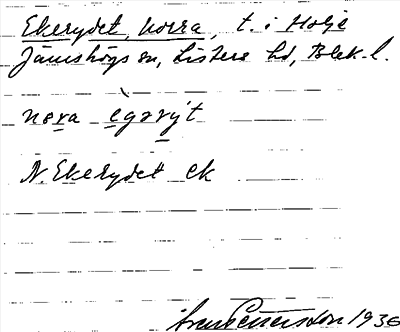 Ekerydet, Norra, t. i Holje
Jämshögs sn, Listers hd, Blek. l.
nora ègərýt
N. Ekerydet ek
1936